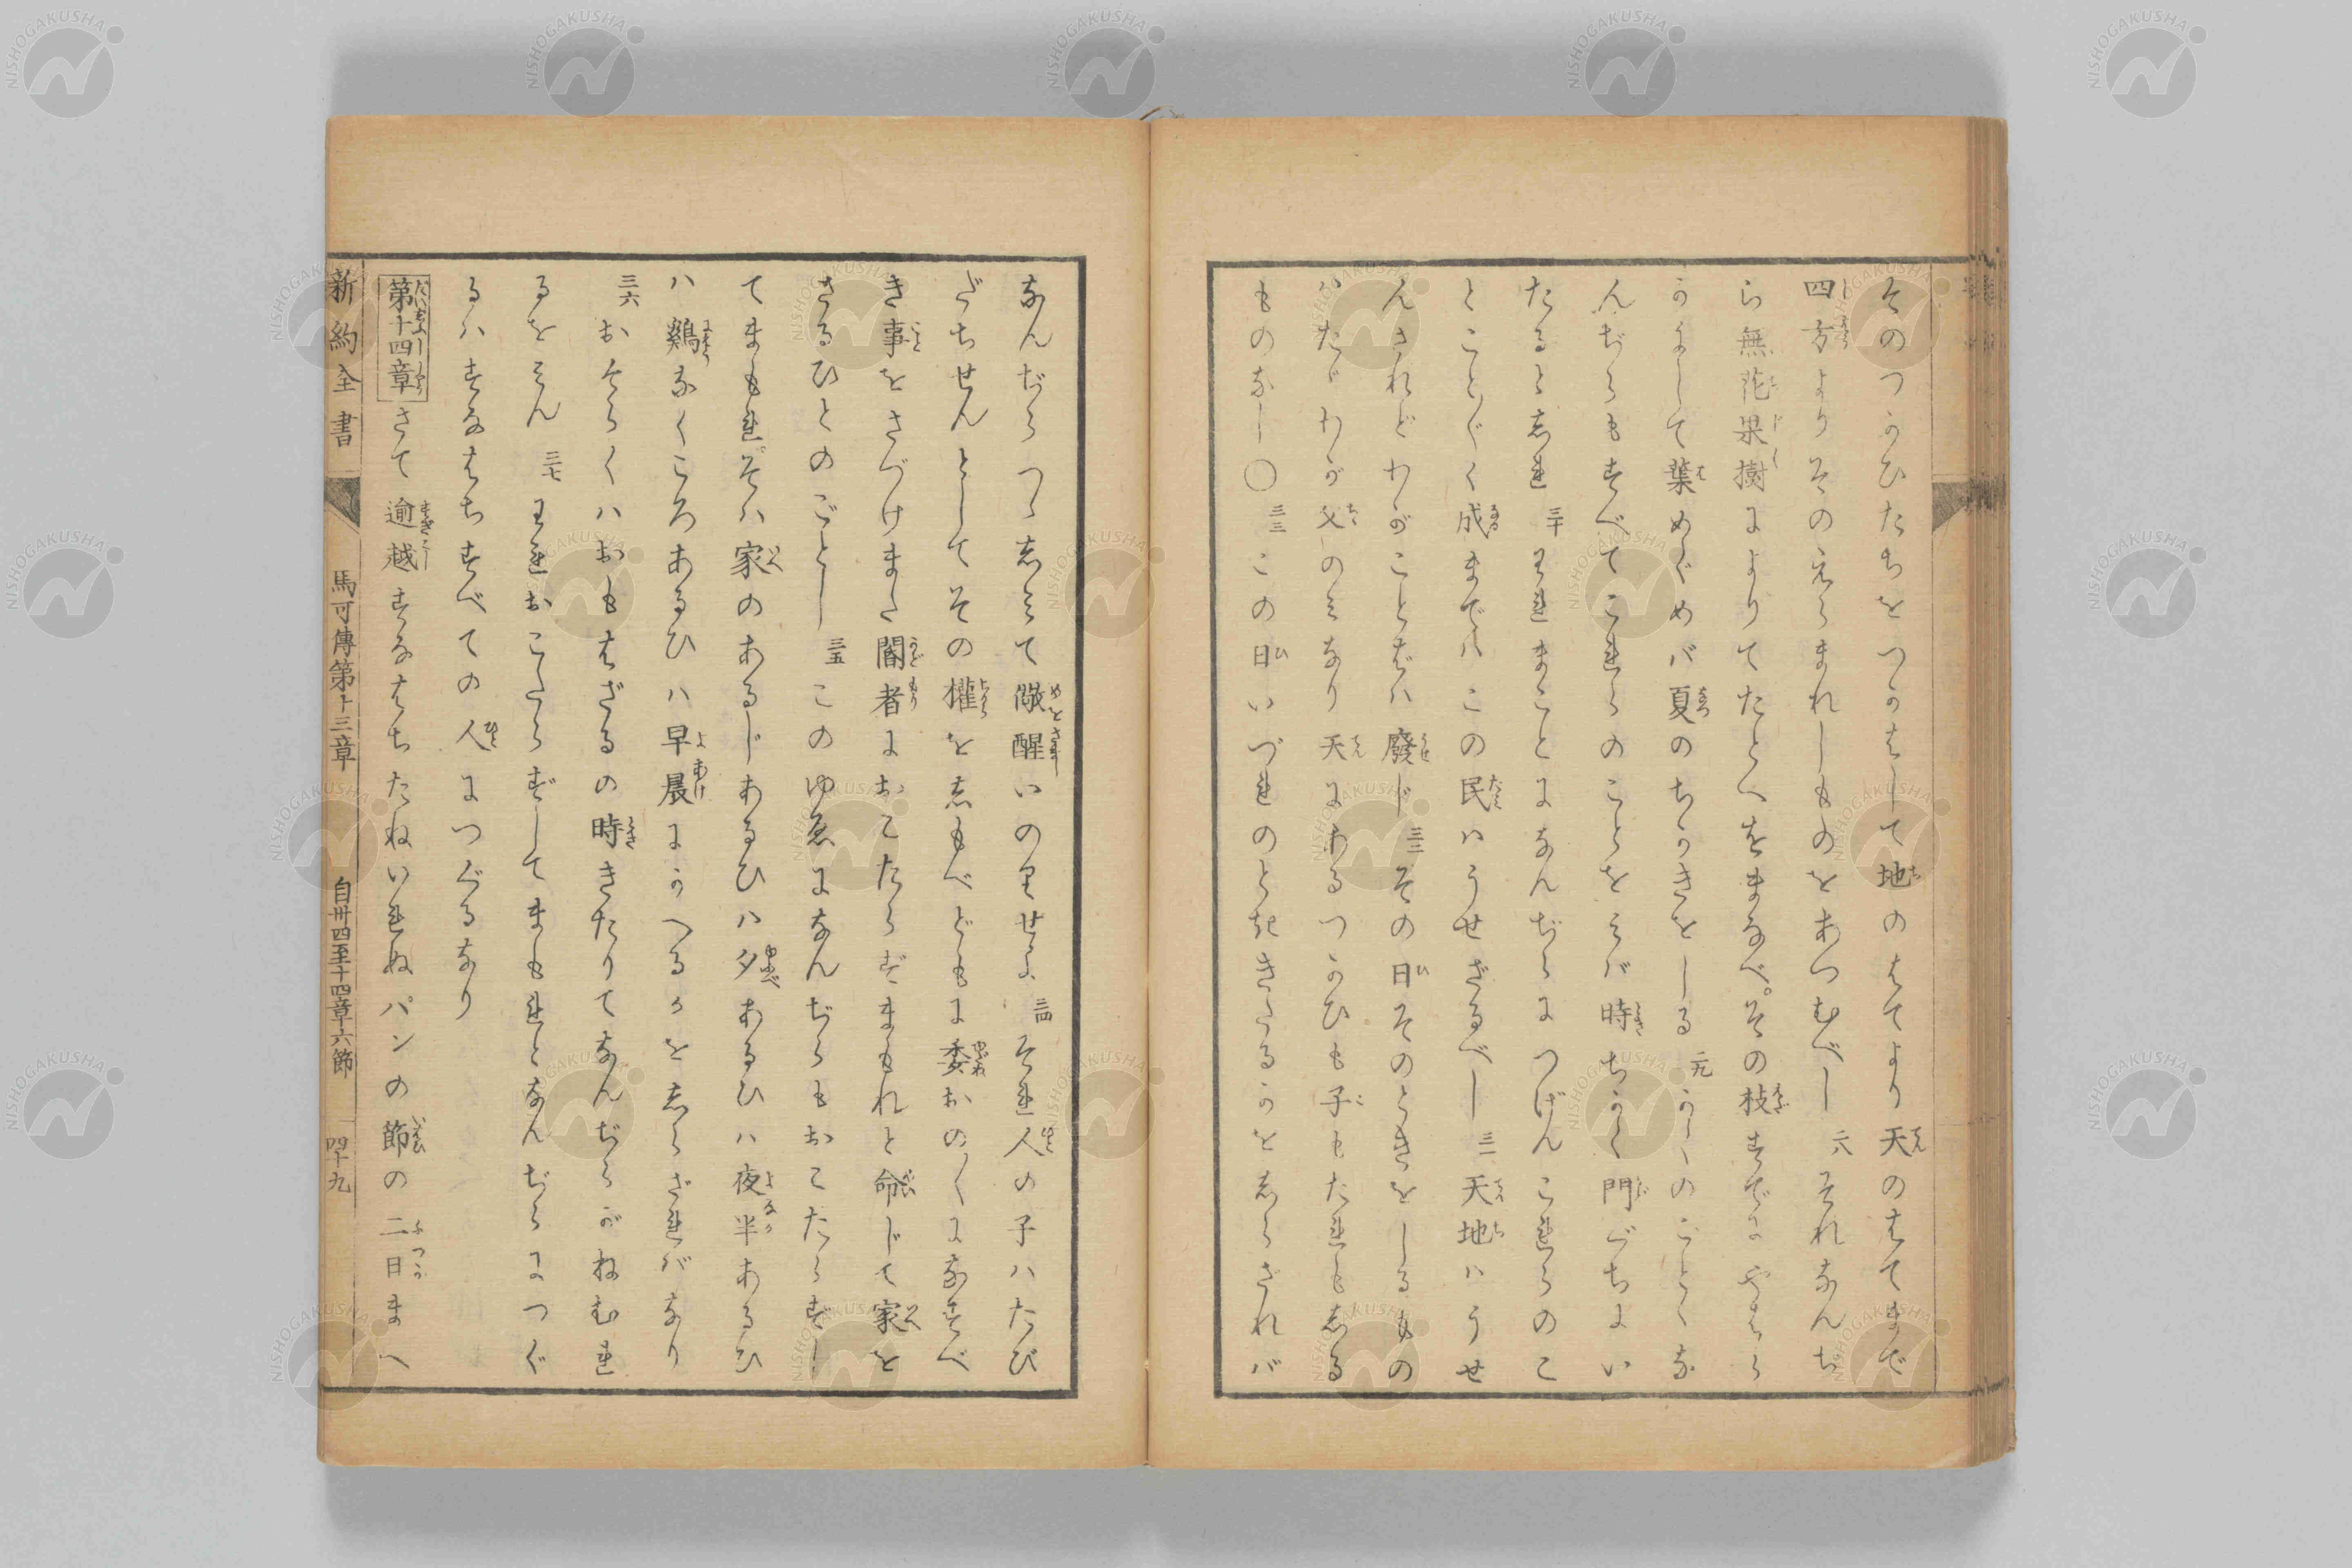 そのつかひたちをつかはして地のはてより天のはてまで
四方よりそのえらまれしものをあつむべし 六 それなんぢ
ら無花果樹によりてたとへをまなべ。その枝すでにやはら
かにして葉めぐめバ夏のちかきをしる 二九 かくのごとくな
んぢらもすべてこれらのことをみバ時ちかく門ぐちにい
たるとしれ 三十 われまことになんぢらにつげんこれらのこ
とことごとく成まではこの民ハうせざるべし 三一 天地ハうせ
んされどわがことばハ廢じ 三二 その日そのときをしるもの
ハたゞわが父のミなり天にあるつかひも子もたれもしる
ものなし〇 三三 この日いづれのときゝたるかをしらざれバ
なんぢらつゝしみて儆醒いのりせよ 三四 それ人の子ハたび
だちせんとしてその權をしもべどもに委おの〱になすべ
き事をさづけまた閽者におこたらずまもれと命じて家を
さるひとのごとし 三五 このゆゑになんぢらもおこたらずし
てまもれ。そハ家のあるじあるひハ夕あるひハ夜半あるひ
ハ鷄なくころあるひハ早晨にかへるかをしらざれバなり
三六 おそらくハおもはざるの時きたりてなんぢらがねむれ
るをみん 三七 われおこたらずしてまもれとなんぢらにつぐ
るハすなはちすべての人につぐるなり
第十四章 さて逾越すなはちたねいれぬパンの節の二日まへ
新約全書 馬可傳第十三章 自卅四至十四章六節 四十九
NISHOGAKUSHA